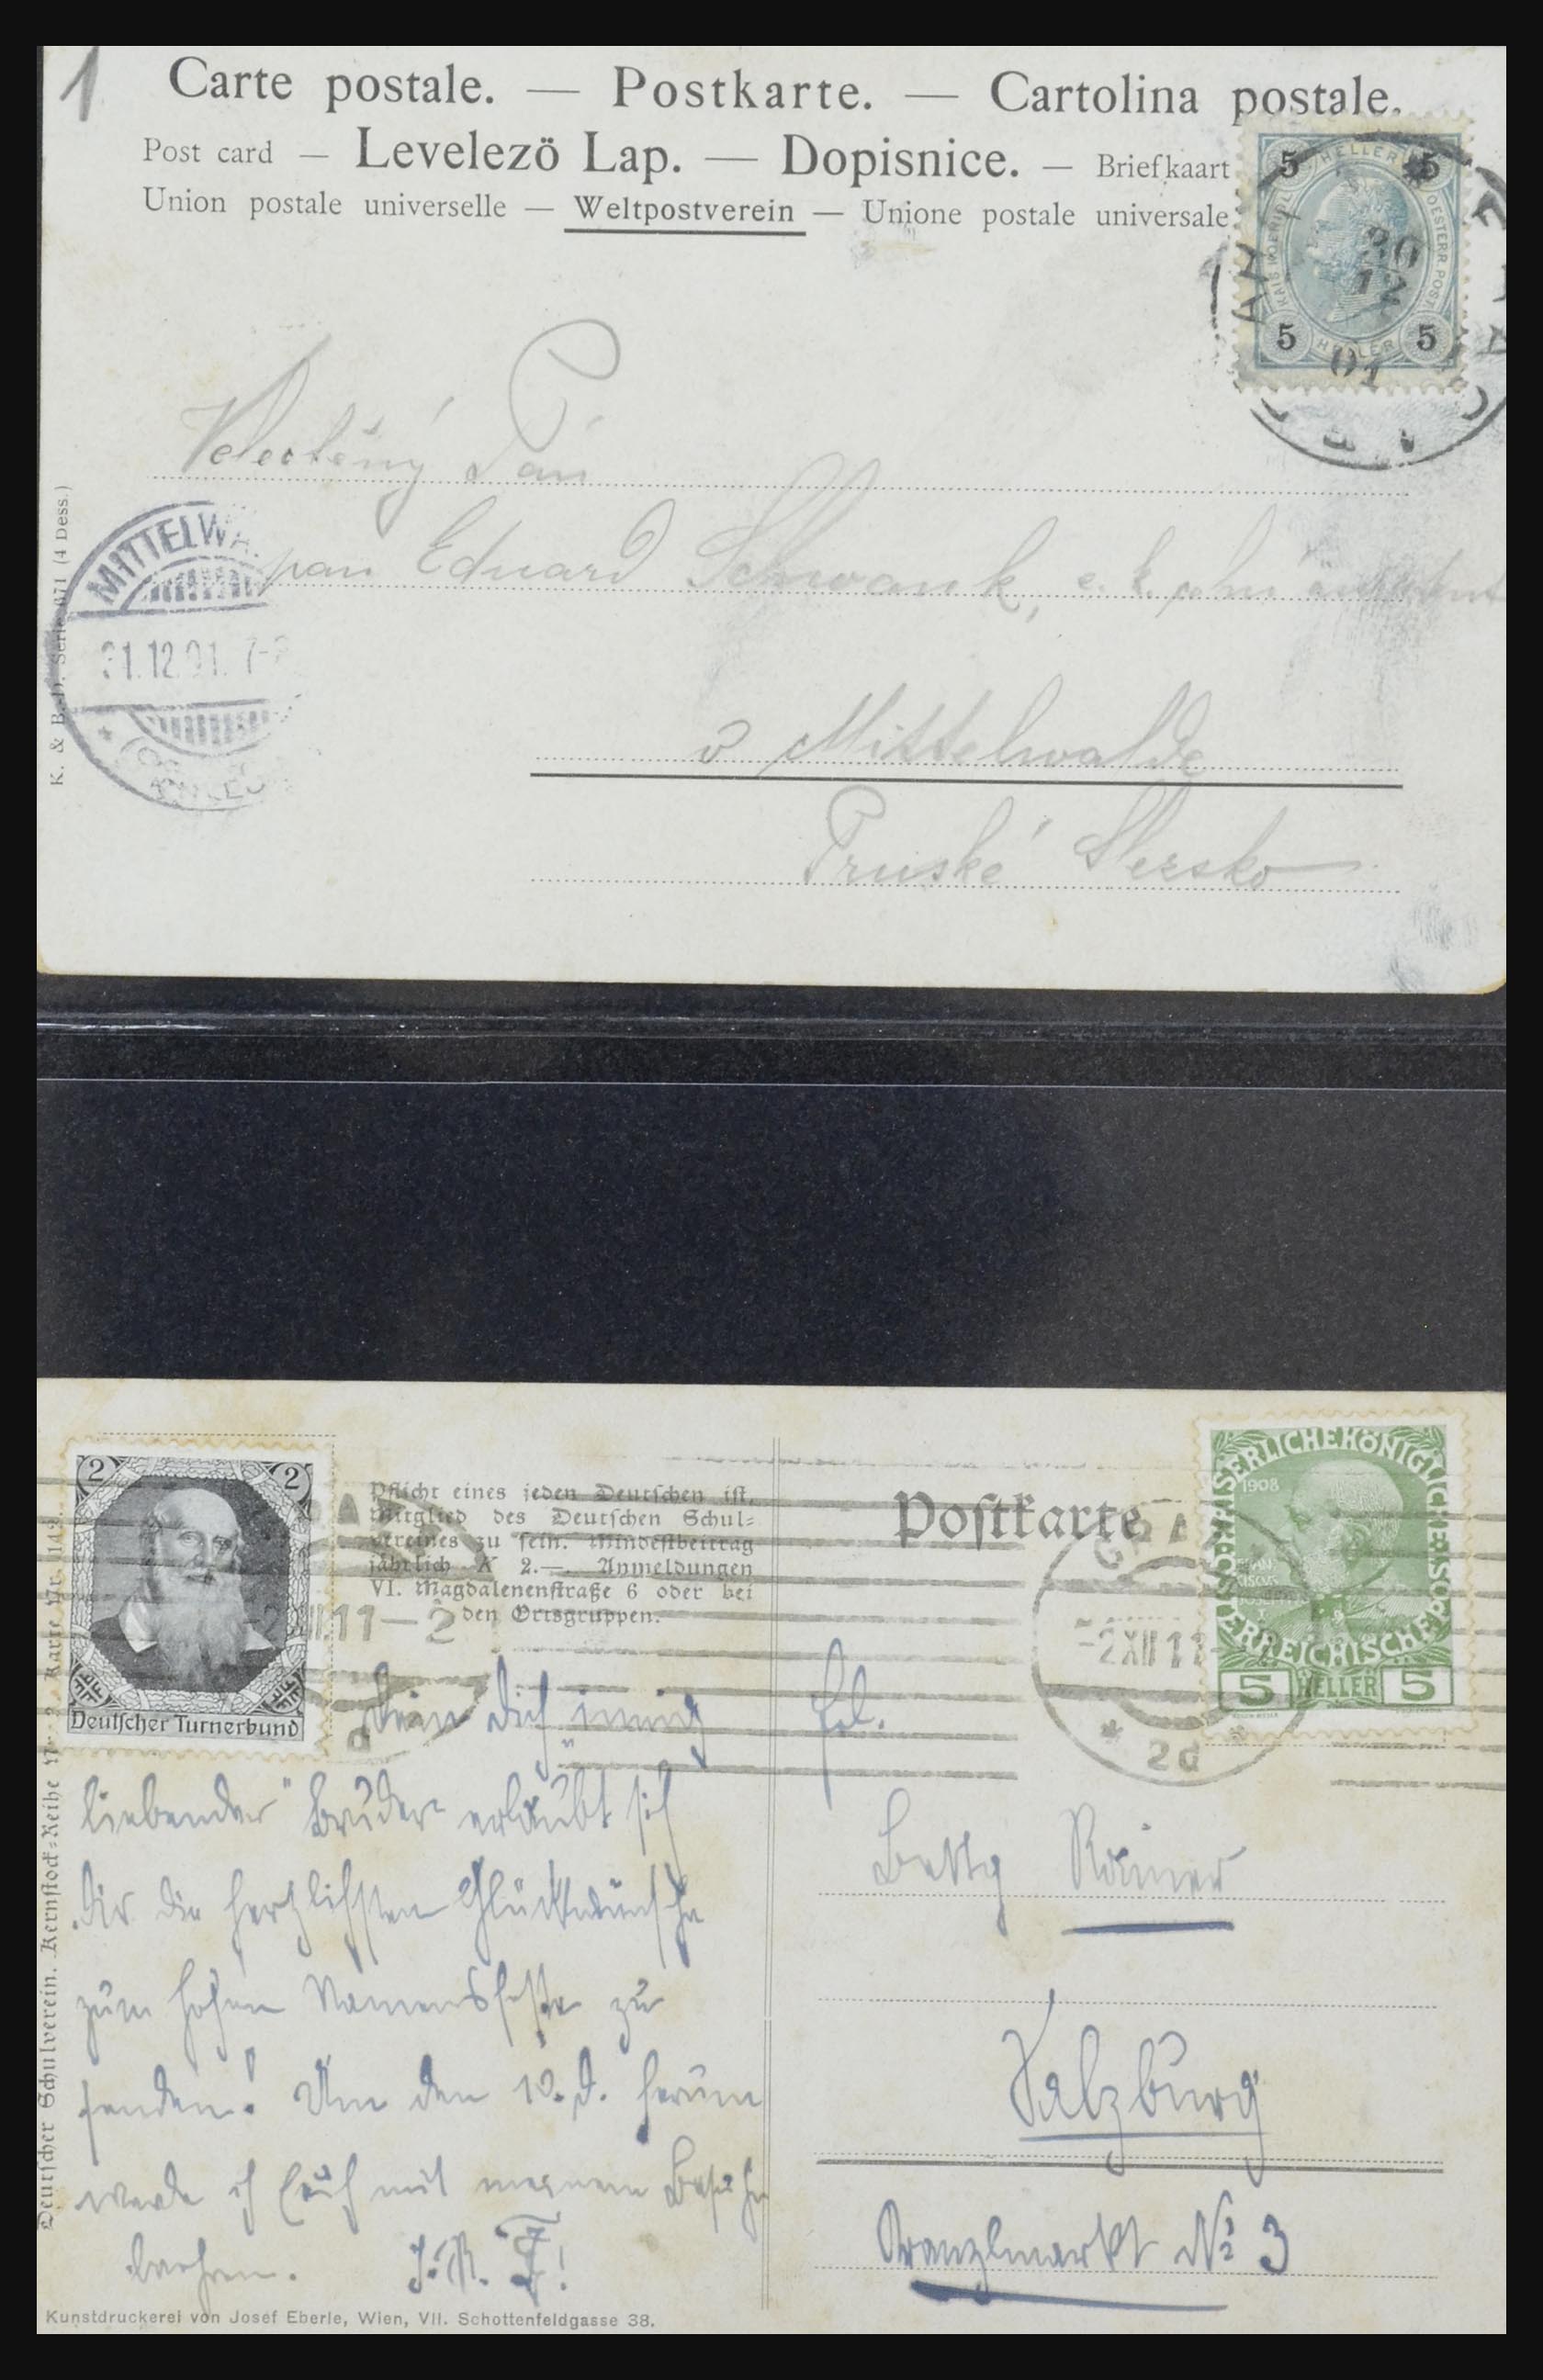 1
Carte postale. — Postkarte. — Cartolina postale.
Post card — Levelezö Lap. — Dopisnice. — Briefkaart
Union postale universelle — Weltpostverein — Unione postale universale
5 HELLER 5
KAIS. KOENIGL. OESTERR. POST.
5 HELLER 5
30
12
01
Velectěný Pán
pan Eduard Schwank, c. k.
v Mittelwalde
Pruské Slezsko
MITTELWA
31.12.01. 7-
K. & B. D. Serie 471 (4 Dess.)
2 2
Deutscher Turnerbund
Pflicht eines jeden Deutschen ist,
Mitglied des Deutschen Schul-
vereines zu sein. Mindestbeitrag
jährlich K 2.—. Anmeldungen
VI. Magdalenenstraße 6 oder bei
den Ortsgruppen.
Postkarte
KAISERLICHE KÖNIGLICHE ÖSTERREICHISCHE POST
1908
5 HELLER 5
-2 XII 11
2d
XII 11 - 2
Dein Dich „innig
liebender“ Bruder erlaubt sich
Dir die herzlichsten Glückwünsche
zum hohen Namensfeste zu
senden! Um den 10. d. herum
werde ich Euch mit meinem Besuche
beehren.
Frl.
Betty Rainer
Salzburg
Kranzlmarkt № 3
Deutscher Schulverein. Kernstock-Reihe Nr. 2 Karte Nr. 149.
Kunstdruckerei von Josef Eberle, Wien, VII. Schottenfeldgasse 38.